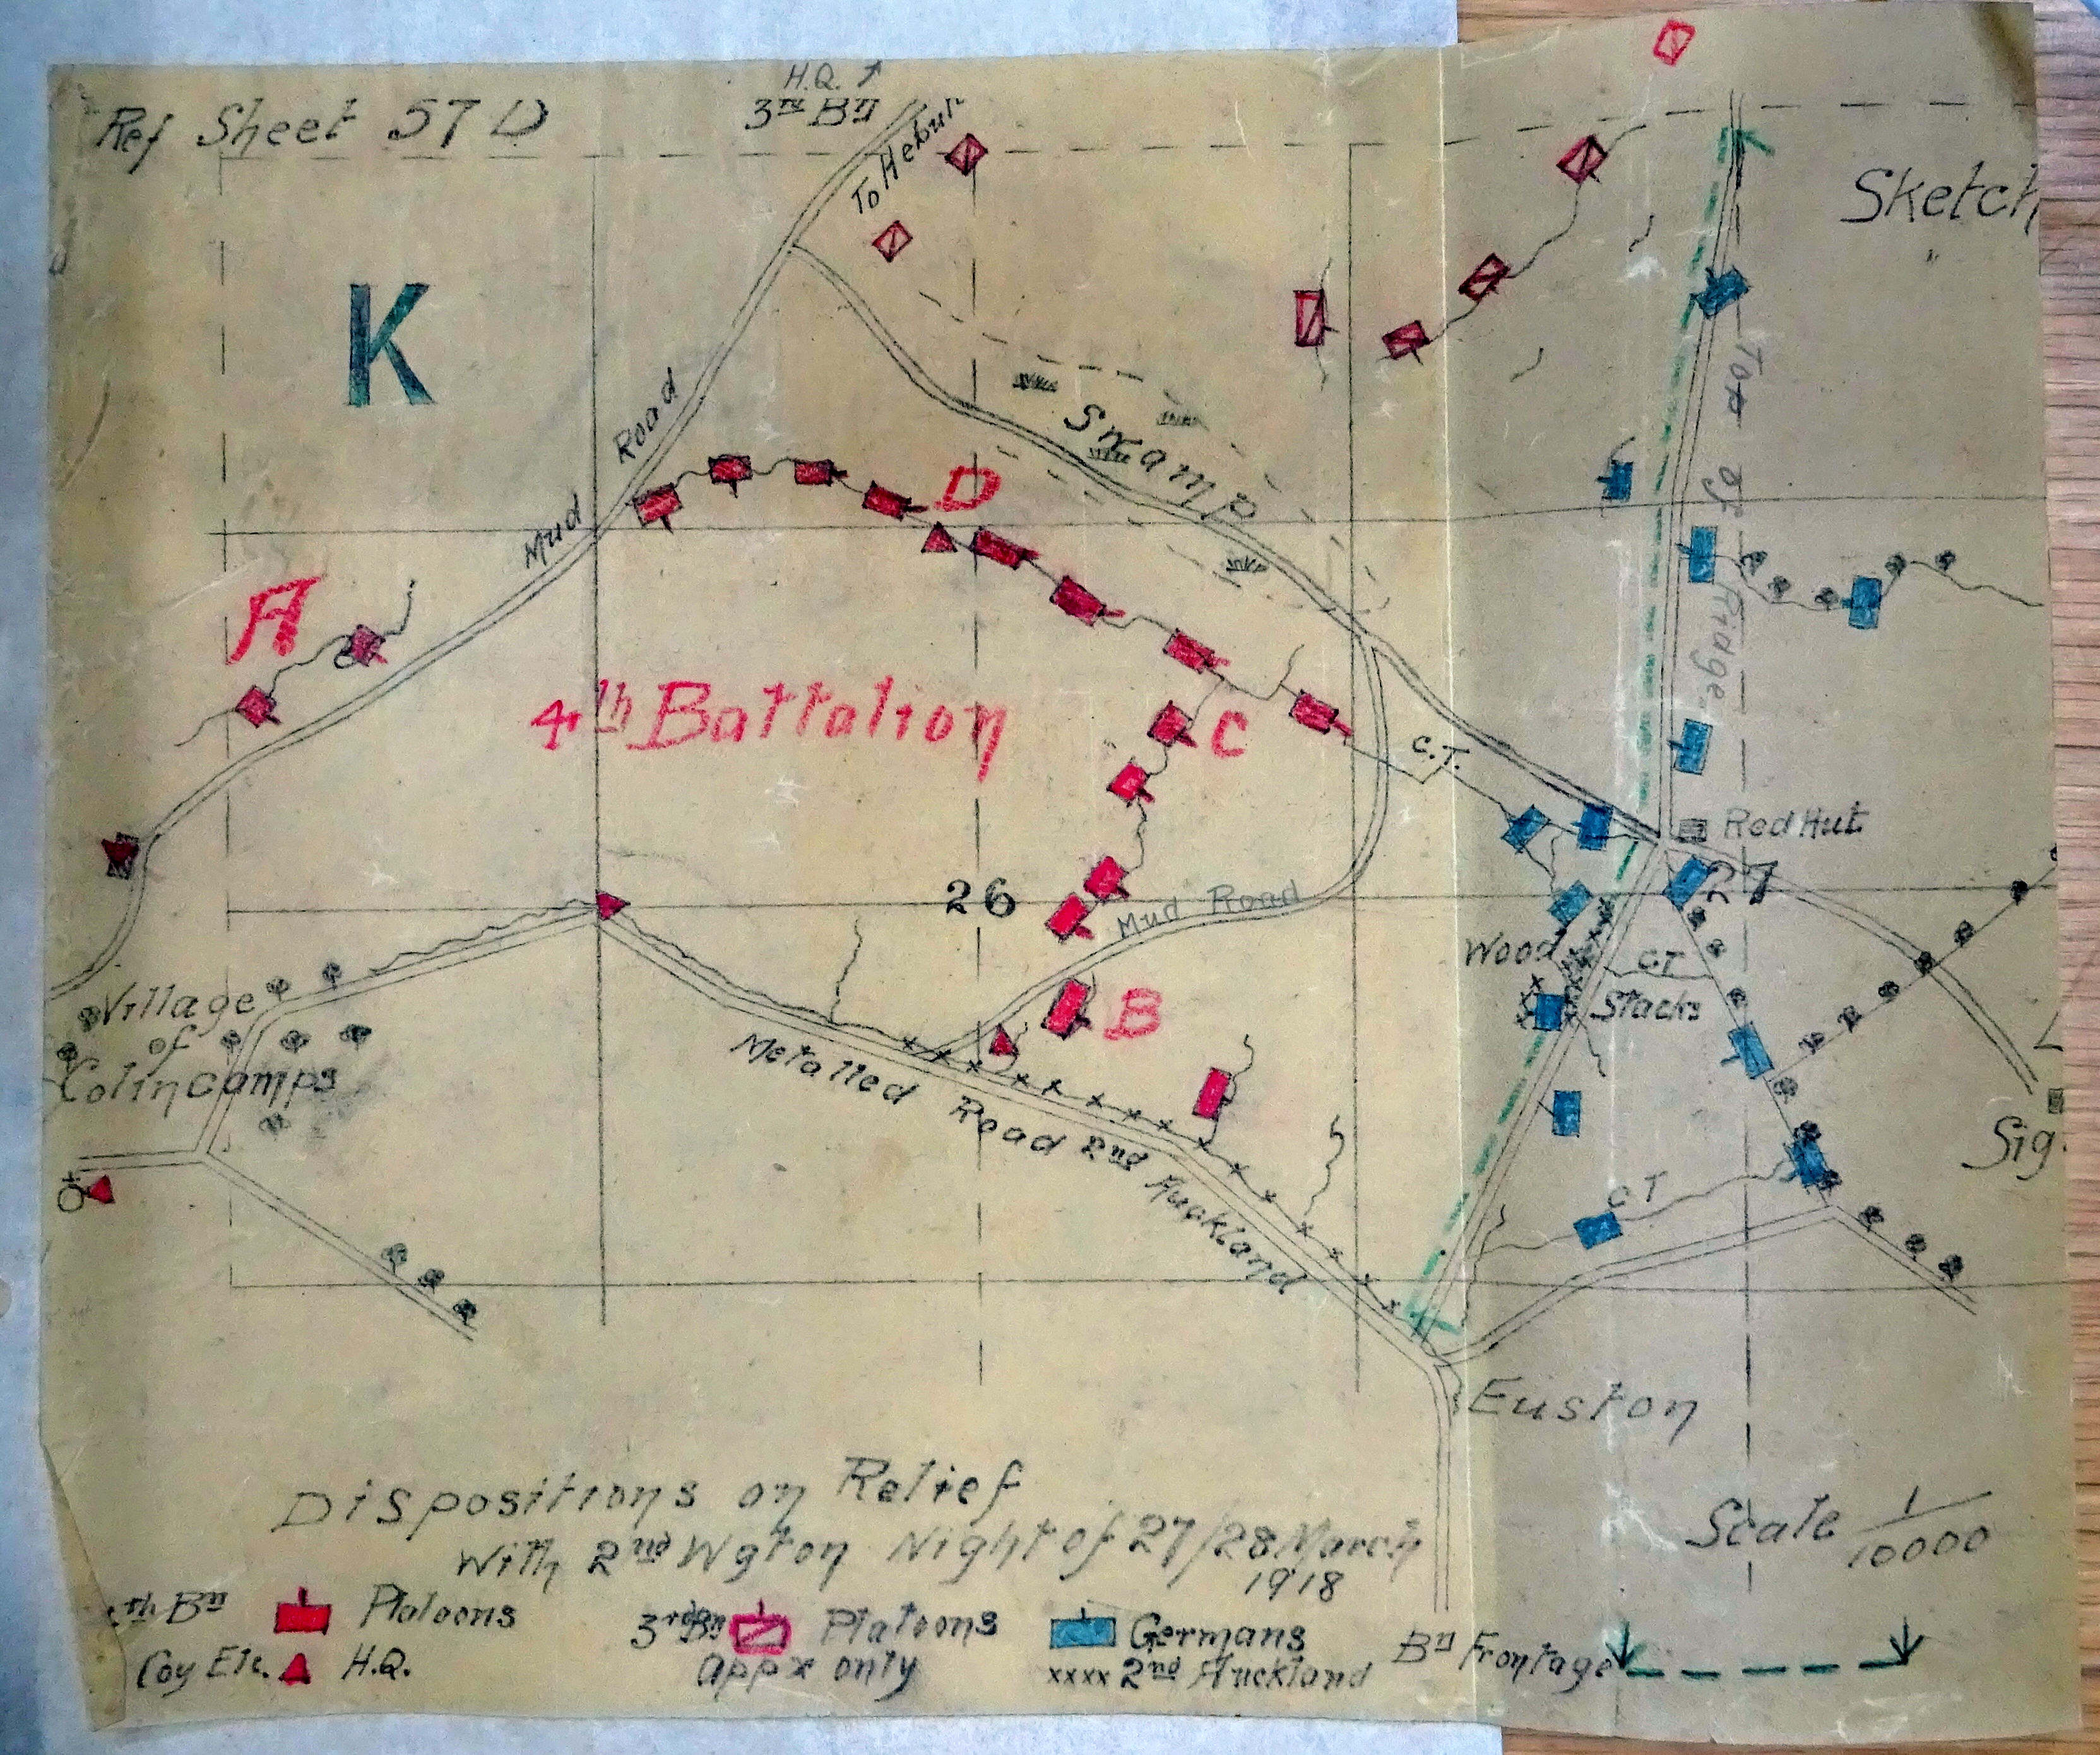 H.Q.
3rd Bn
Ref Sheet 57 D
To Hebut
Sketch
K
Top of Ridge
Road
Mud
Swamp
D
A
4th Battalion
C
C.T.
Red Hut
27
26
Mud Road
Wood
C.T
Stacks
Village
of
Colincamps
B
Metalled Road 2nd Auckland
Sig.
C T
Euston
Dispositions on Relief
With 2nd Wgton Night of 27/28 March
1918
Scale 1/10000
th Bn Platoons
3rd Bn Platoons
Germans
Bn Frontage
Coy Etc. H.Q.
appx only
xxxx 2nd Auckland